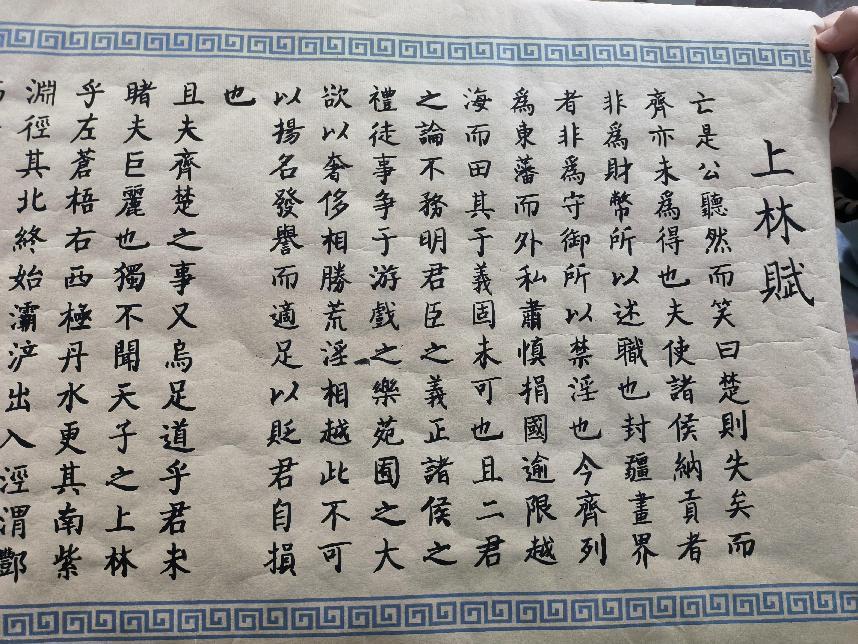 上林賦
亡是公聽然而笑曰楚則失矣而
齊亦未爲得也夫使諸侯納貢者
非爲財幣所以述職也封疆畫界
者非爲守御所以禁淫也今齊列
爲東藩而外私肅慎捐國逾限越
海而田其于義固未可也且二君
之論不務明君臣之義正諸侯之
禮徒事争于游戲之樂苑囿之大
欲以奢侈相勝荒淫相越此不可
以揚名發譽而適足以貶君自損
也
且夫齊楚之事又烏足道乎君未
睹夫巨麗也獨不聞天子之上林
乎左蒼梧右西極丹水更其南紫
淵徑其北終始灞浐出入涇渭酆